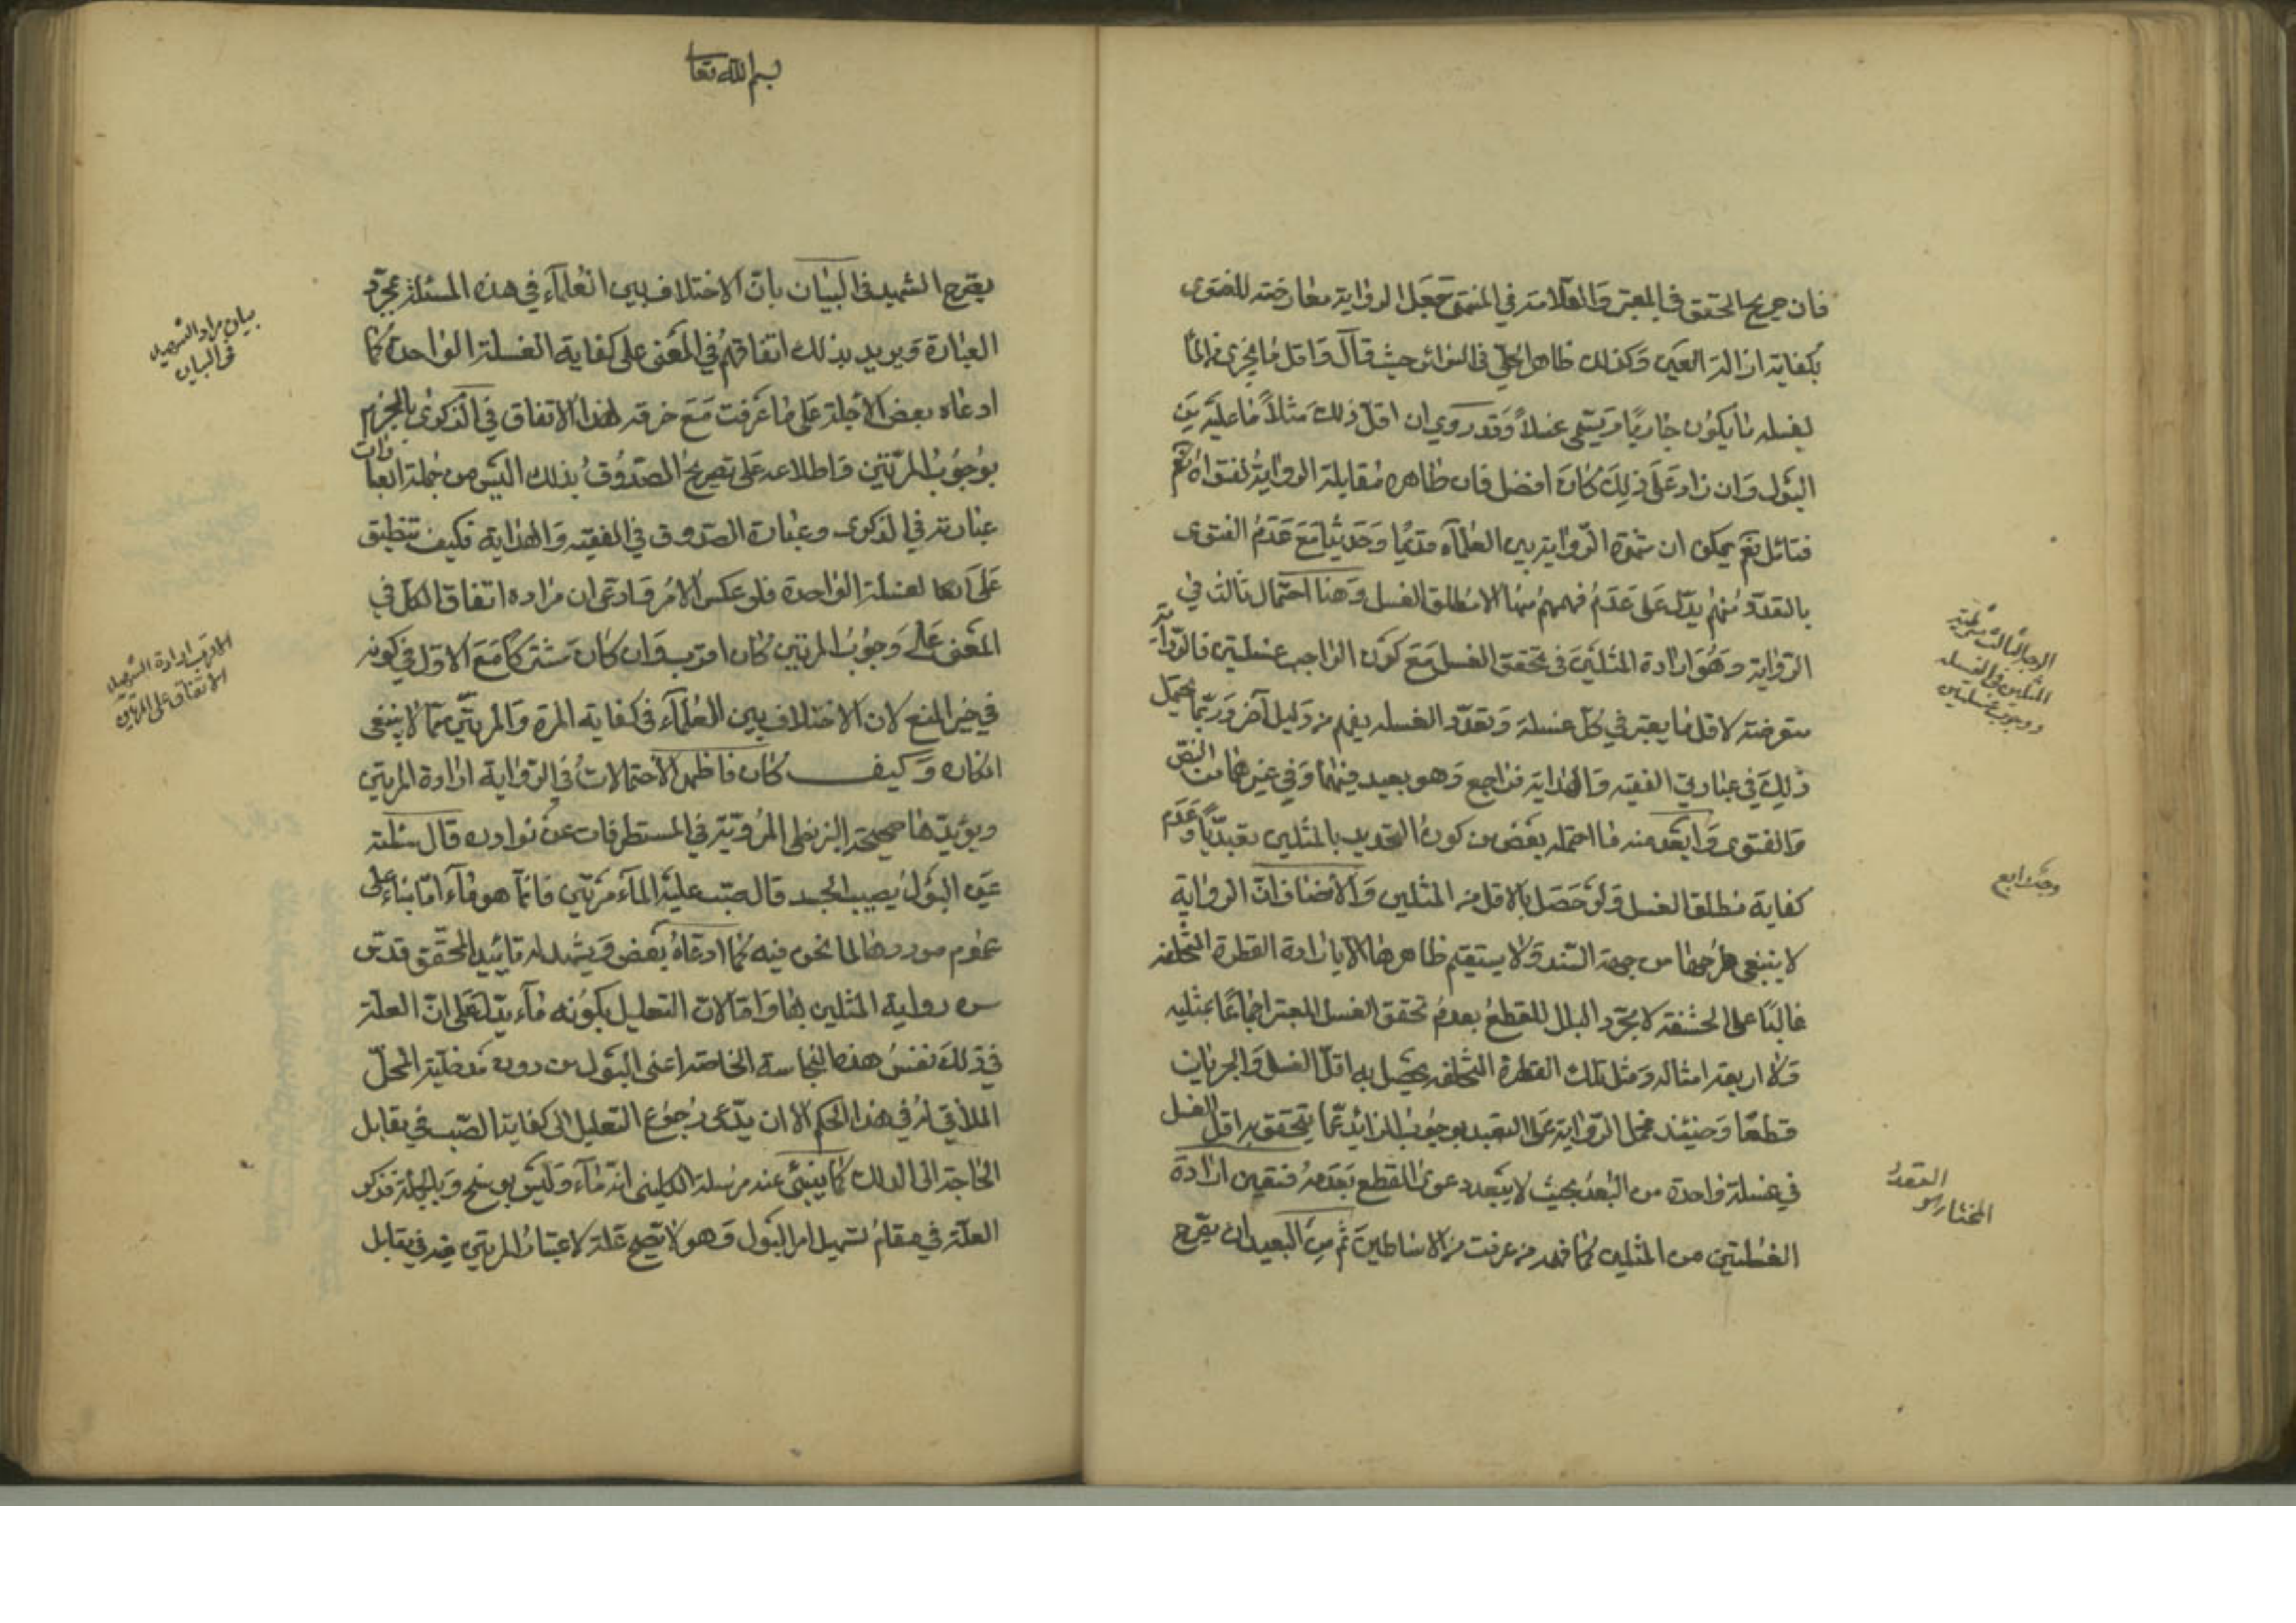 فان صريح المحقق في المعتبر والعلامة في المنتهى جعل الرواية معارضة للفتوى
بكفاية ازالة العين وكذلك ظاهر الحلي في السرائر حيث قال واقل ما يجزي من الماء
لغسله ما يكون جاريا ويسمى غسلا وقد روي ان اقل ذلك مثلا ما عليه من
البول وان زاد على ذلك كان افضل فان ظاهره مقابلة الرواية لفتواه
فتامل نعم يمكن ان شهرة الرواية بين العلماء قديما وحديثا مع عدم الفتوى
بالتعدد منهم يدل على عدم فهمهم منها الا مطلق الغسل وهنا احتمال ثالث في
الرواية وهو ارادة المثلين في تحقق الغسل مع كون الواجب غسلتين فالرواية
متعرضة لاقل ما يعتبر في كل غسلة وتعدد الغسله يفهم من دليل آخر وربما يحتمل
ذلك في عبارتي الفقيه والهداية فراجع وهو بعيد فيهما وفي غيرهما من النص
والفتوى وابعد منه ما احتمله بعض من كون التحديد بالمثلين تعبديا وعدم
كفاية مطلق الغسل ولو حصل بالاقل من المثلين والانصاف ان الرواية
لا ينبغي طرحها من جهة السند ولا يستقيم ظاهرها الا بارادة القطرة المتخلفة
غالبا على الحشفة لا مجرد البلل للقطع بعدم تحقق الغسل المعتبر اجماعا بمثليه
ولا اربعة امثاله ومثل تلك القطرة المتخلفة يحصل به اقل الغسل والجريان
قطعا وحينئذ فحمل الرواية على التعبد بوجوب الزائد عما يتحقق به اقل الغسل
في غسلة واحدة من البعد بحيث لا يبعد دعوى القطع بعدمه فتعين ارادة
الغسلتين من المثلين كما فهمه من عرفت من الاساطين ثم من البعيد ان يصرح
الوجه الثالث
المثلين في الغسله
ووجوب غسلتين
وجه رابع
المختار هو التعدد
بسم الله تعا
يصرح الشهيد في البيان بان الاختلاف بين العلماء في هذه المسئلة بمجرد
العبارة ويريد بذلك اتفاقهم في المعنى على كفاية الغسلة الواحدة كما
ادعاه بعض الاجلة على ما عرفت مع خرقه لهذا الاتفاق في الذكرى بالجزم
بوجوب المرتين واطلاعه على تصريح الصدوق بذلك اليس من جملة العبارات
عبارته في الذكرى وعبارة الصدوق في الفقيه والهداية فكيف تنطبق
على الغسلة الواحدة فلو عكس الامر وادعى ان مراده اتفاق الكل في
المعنى على وجوب المرتين كان اقرب وان كان مشتركا مع الاول في كونه
في حيز المنع لان الاختلاف بين العلماء في كفاية المرة والمرتين مما لا ينبغي
انكاره وكيف كان فاظهر الاحتمالات في الرواية ارادة المرتين
ويؤيدها صحيحة البزنطي المروية في المستطرفات عن نوادره قال سئلته
عن البول يصيب الجسد قال صب عليه الماء مرتين فانما هو ماء اما بناء على
عموم موردها لما نحن فيه كما ادعاه بعض ويشهد له تاييد المحقق قدس
سره رواية المثلين بها واما لان التعليل بكونه ماء يدل على ان العلة
في ذلك نفس هذه النجاسة الخاصة اعني البول من دون مدخلية المحل
الملاقي له في هذا الحكم الا ان يدعى رجوع التعليل الى كفاية الصب في مقابل
الحاجة الى الدلك كما ينبئ عنه مرسلة الكليني انه ماء وليس بوسخ وبالجملة فذكر
العلة في مقام تسهيل امر البول وهو لا تصح علة لاعتبار المرتين فيه في مقابل
بيان مراد الشهيد
في البيان
الاقرب ارادة الشهيد
الاتفاق على المرتين